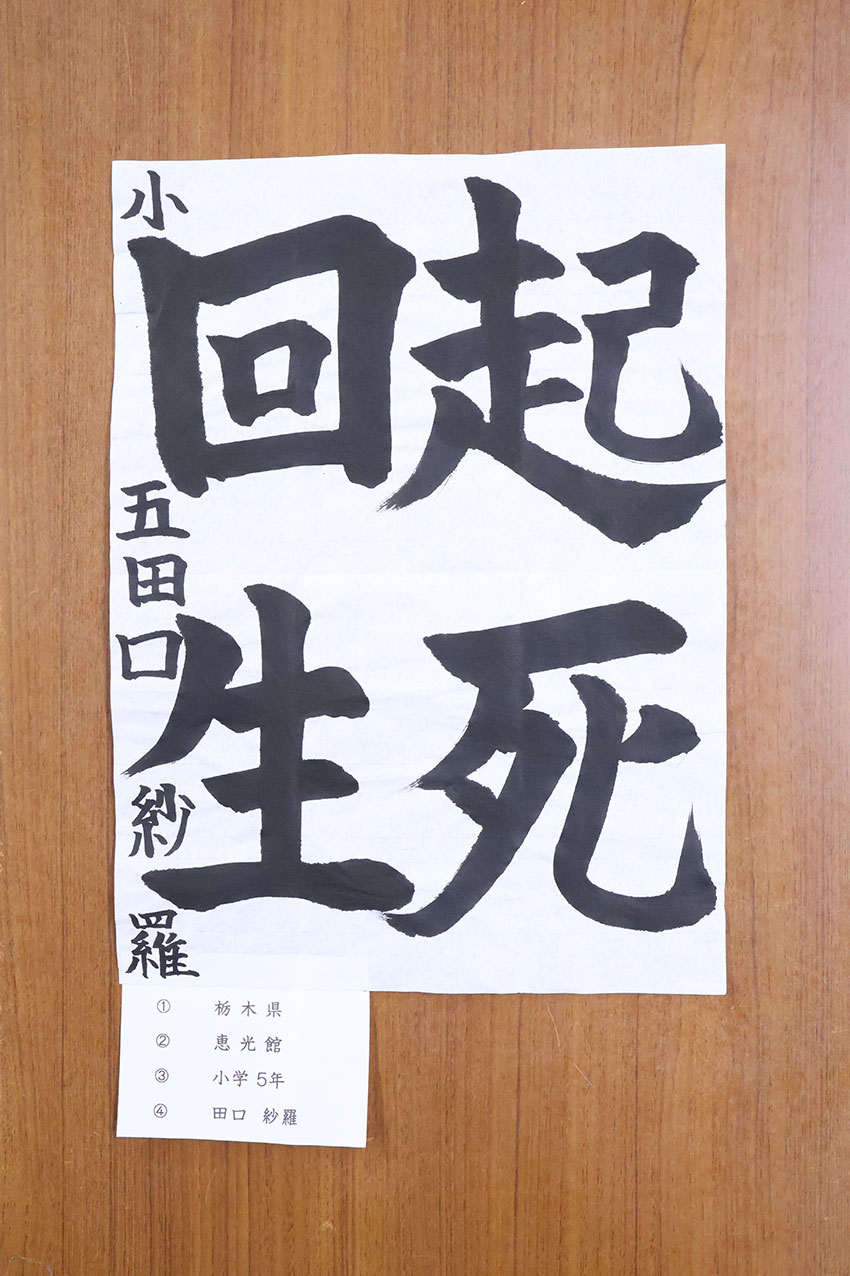 起死
回生
小五田口紗羅
① 栃木県
② 恵光館
③ 小学 5年
④ 田口 紗羅